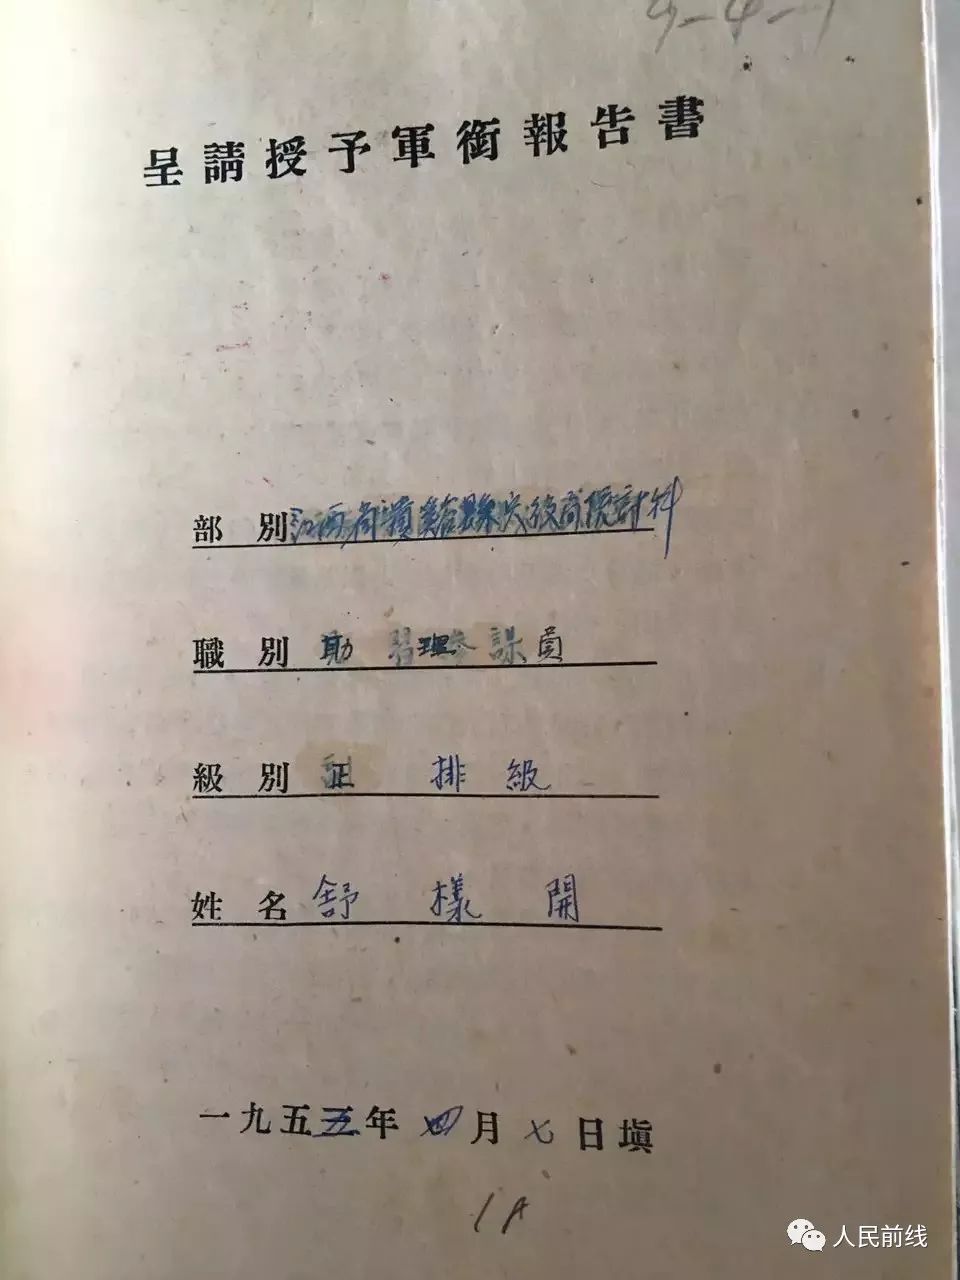 9-4-1
呈請授予軍銜報告書
部別 江西省 縣 科
職別 助理員
級別 正排級
姓名 舒樣開
一九五五年四月七日填
1A
人民前线